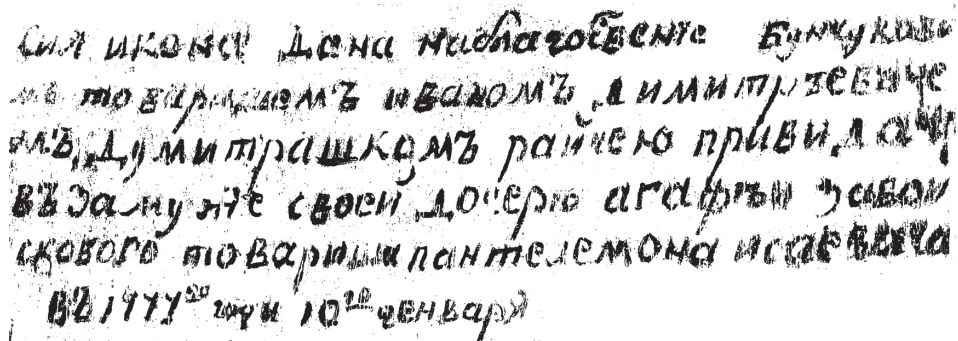 Сия икона дана наблагосвенїе Бунчуково
мъ товарищемъ иваномъ димитрїевиче
мъ думитрашкомъ райчею приви дачи
въ замужїе своей дочерю агафїи завои
скового товариша пантелемона исаевича
въ 1777го году 10го генваря